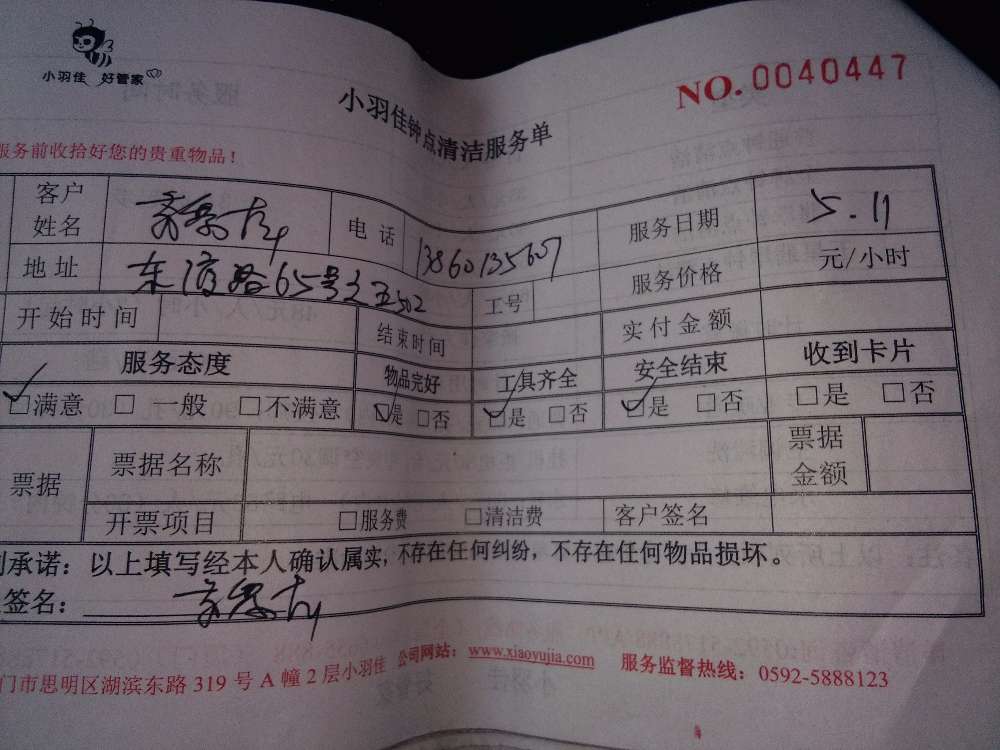 小羽佳 好管家
NO. 0040447
小羽佳钟点清洁服务单
服务前收拾好您的贵重物品！
客户姓名 电话 13860135607 服务日期 5.11
地址 东渡路65号之五502 工号 服务价格 元/小时
开始时间 结束时间 实付金额
服务态度 物品完好 工具齐全 安全结束 收到卡片
☑满意 □一般 □不满意 ☑是 □否 ☑是 □否 ☑是 □否 □是 □否
票据 票据名称 票据金额
开票项目 □服务费 □清洁费 客户签名
承诺：以上填写经本人确认属实，不存在任何纠纷，不存在任何物品损坏。
签名：
门市思明区湖滨东路 319 号 A 幢 2 层小羽佳 公司网站：www.xiaoyujia.com 服务监督热线：0592-5888123